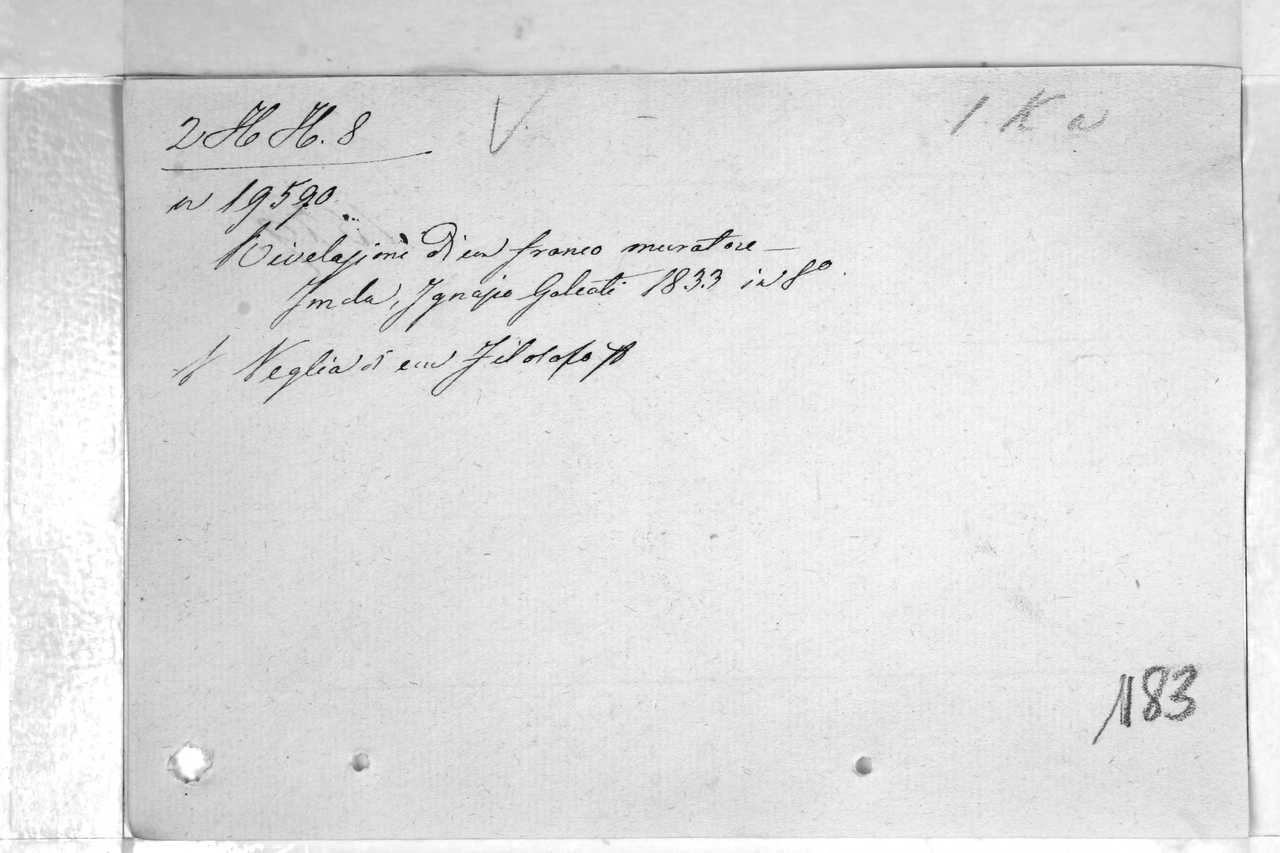 2 H H. 8 V. - 1. K a
n 19590.
Rivelazioni di un franco muratore –
Imola, Ignazio Galeati 1833 in 8º.
Veglia di un Filosofo
183